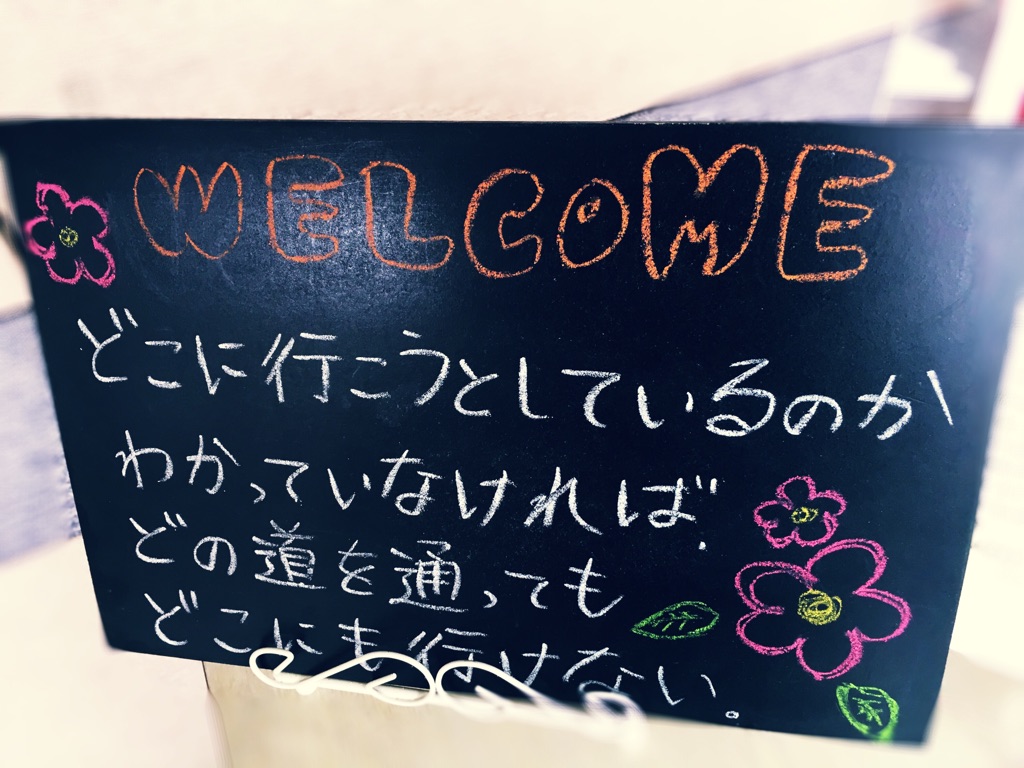 WELCOME
どこに行こうとしているのか
わかっていなければ、
どの道を通っても
どこにも行けない。